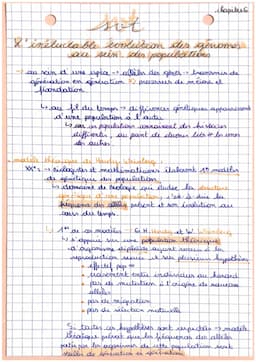 chapitre 6
svt
L'inéluctable évolution des génomes
au sein des populations
→ au sein d'une espèce → allèles des gènes : transmis de
génération en génération processus de méiose et
fécondation
↳ au fil du temps → différences génétiques apparaissent
d'une population à l'autre
↳ ces populations connaissent des histoires
différentes, au point de devenir
des autres
modèle théorique de Hardy Weinberg
XXe s → biologistes et mathématiciens élaborent 1er modèles
de génétique des populations
↳ domaine de biologie qui étudie la structure
génétique d'une population, c'est à dire la
fréquence des allèles présent et son évolution au
cours du temps.
↳ 1er de ces modèles : G.H. Hardy et W. Weinberg
↳ s'appuie sur une population théorique
d'organisme diploïdes ayant recours à la
reproduction sexuée et sur plusieurs hypothèses
effectif pop ∞
croisement entre individus au hasard
pas de mutation à l'origine de nouveaux
allèles
pas de migration
pas de sélection naturelle
Si toutes ces hypothèses sont respectées → modèle
théorique prévoit que les fréquences des allèles
portés par les organismes de cette population sont
stables de génération en génération